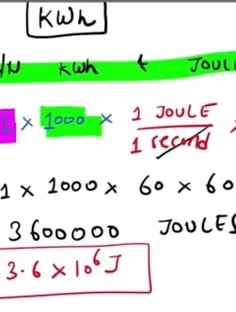 KWh
/N KWh & JOUL
1 × 1000 × 1 JOULE / 1 second ×
1 × 1000 × 60 × 60
3600000 JOULES
3.6 × 10⁶ J